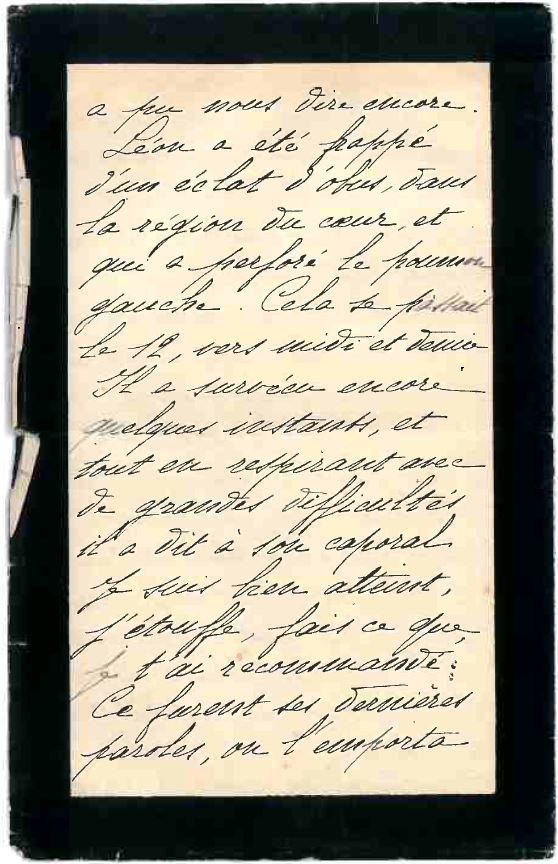 a pu nous dire encore.
Léon a été frappé
d'un éclat d'obus, dans
la région du cœur, et
qui a perforé le poumon
gauche. Cela se passait
le 12, vers midi et demie
Il a survécu encore
quelques instants, et
tout en respirant avec
de grandes difficultés
il a dit à son caporal
Je suis bien atteint,
j'étouffe, fais ce que,
je t'ai recommandé:
Ce furent ses dernières
paroles, on l'emporta